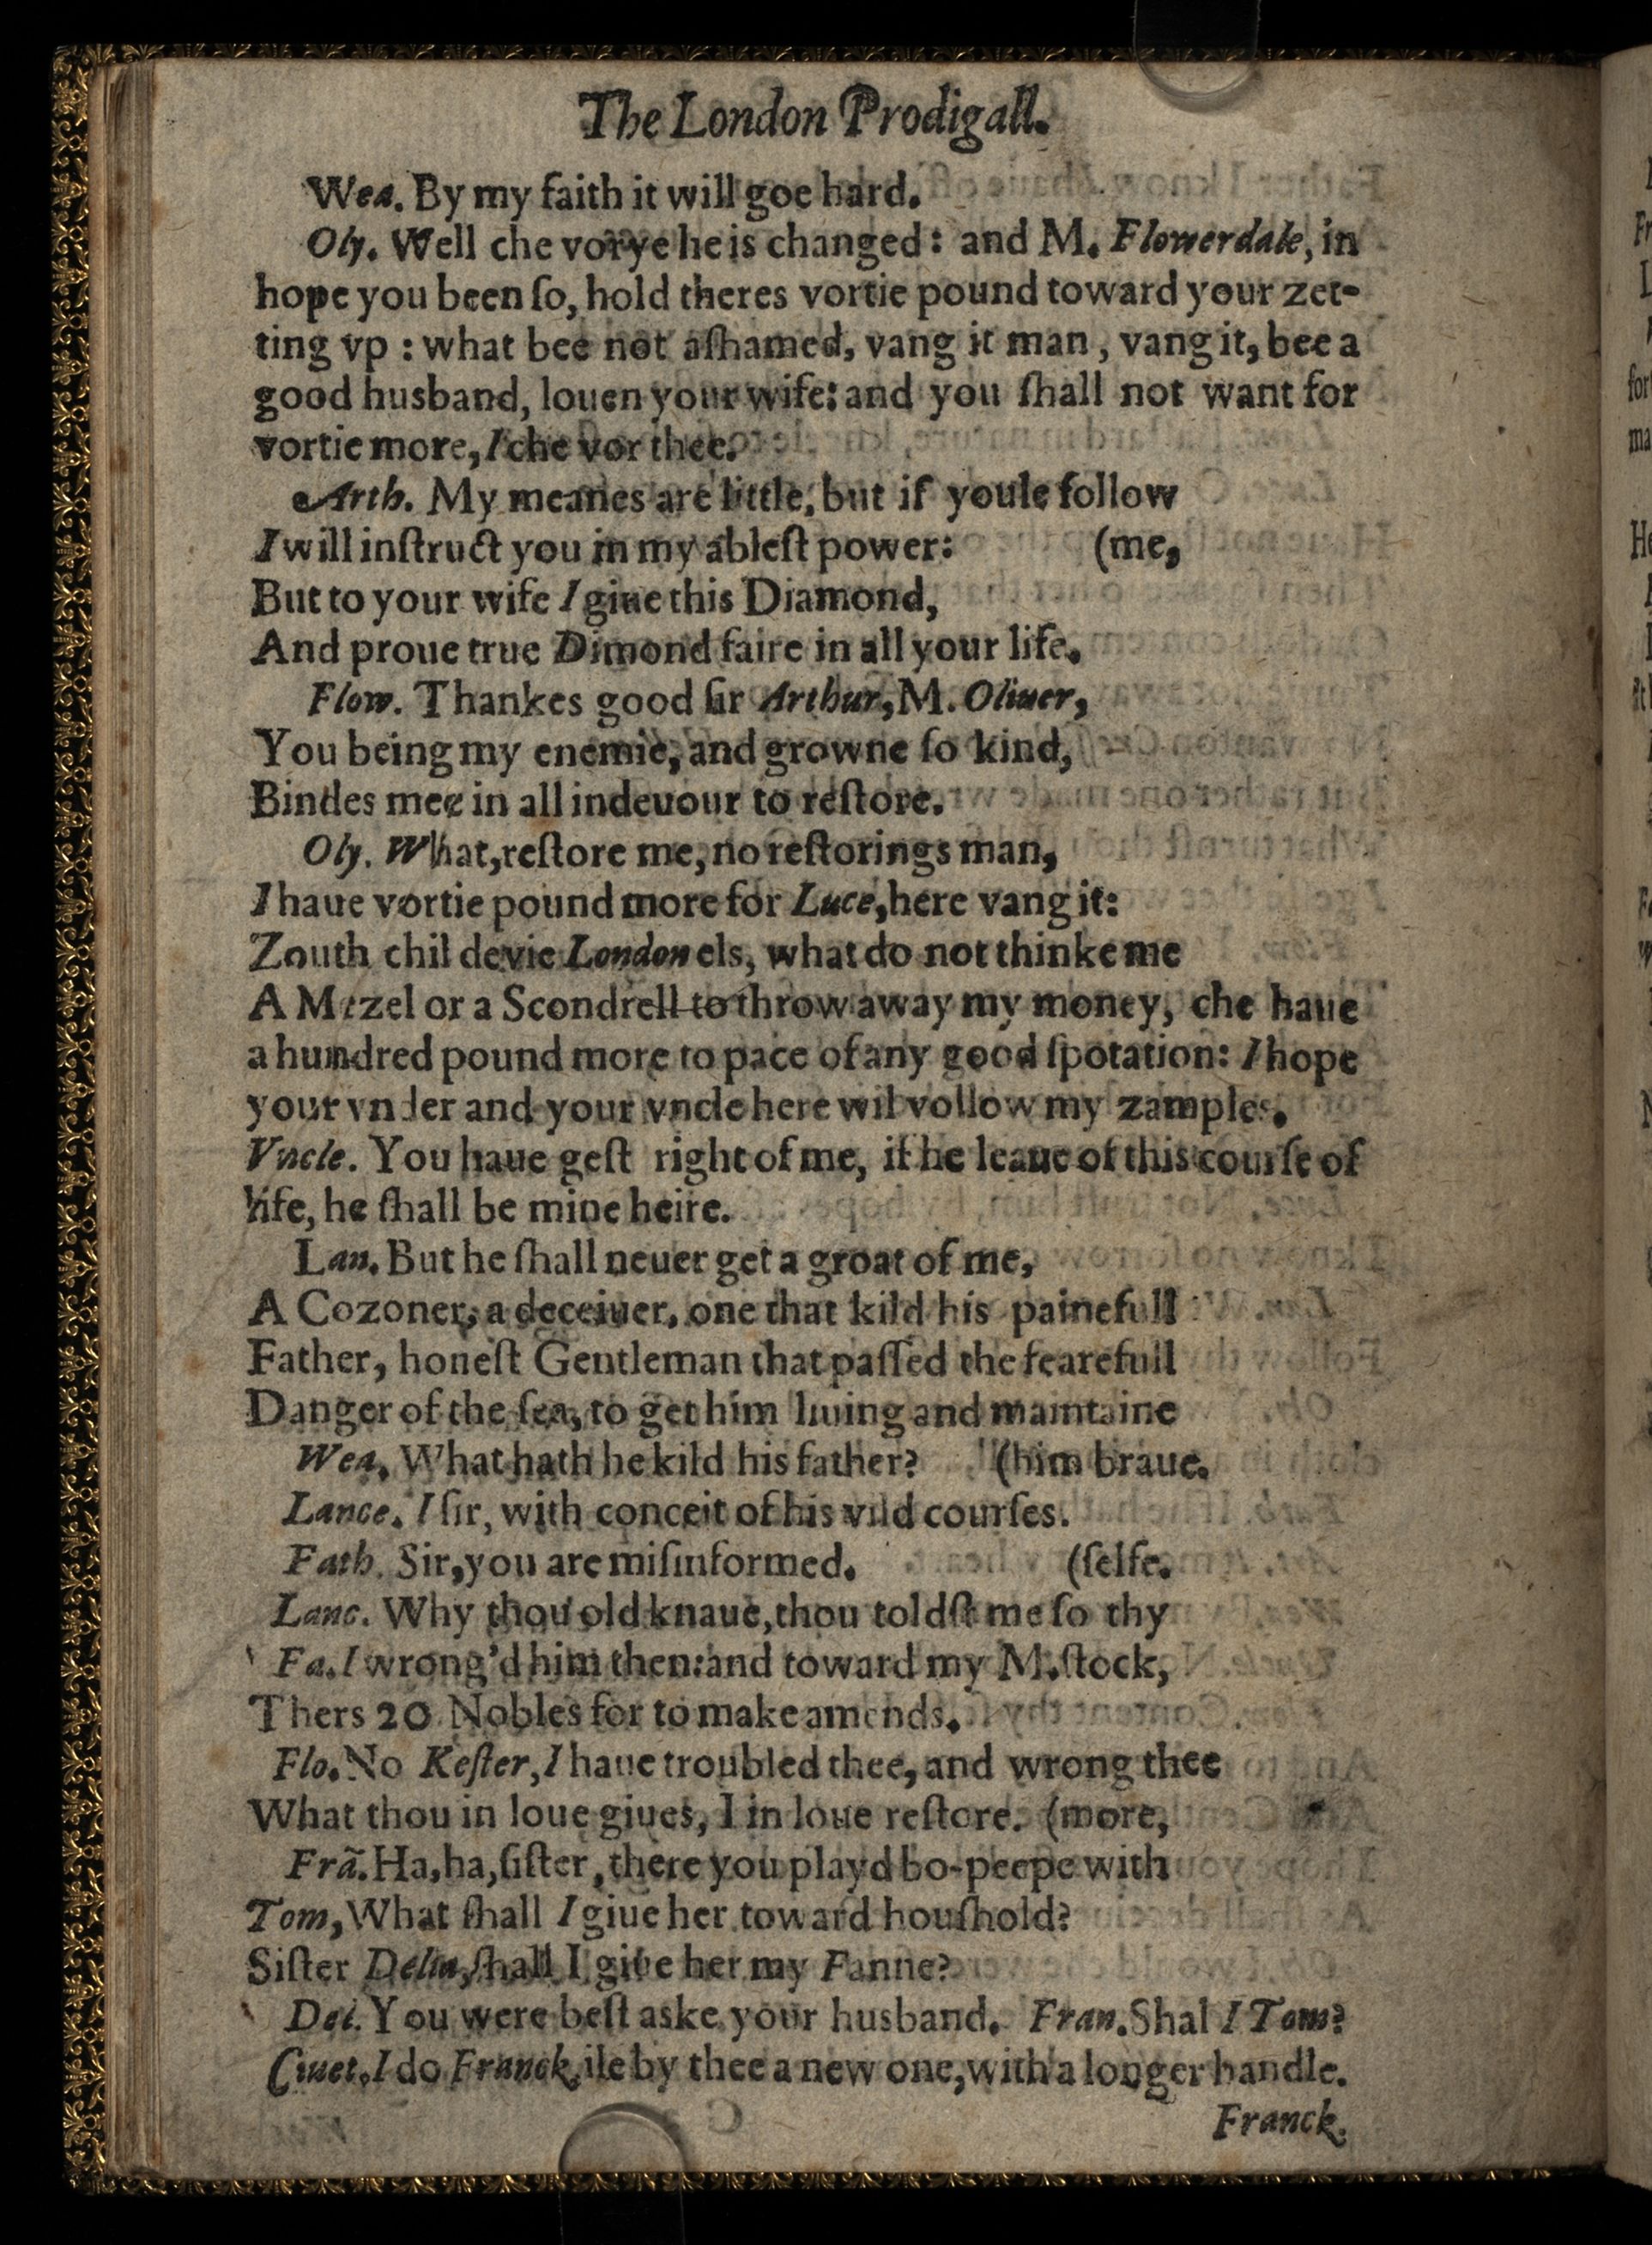 The London Prodigall.
Wea. By my faith it will goe hard.
Oly. Well che vor ye he is changed: and M. Flowerdale, in
hope you been ſo, hold theres vortie pound toward your zet-
ting vp : what bee not aſhamed, vang it man, vang it, bee a
good husband, louen your wife: and you ſhall not want for
vortie more, I che vor thee.
Arth. My meanes are little, but if youle follow
I will inſtruct you in my ableſt power: (me,
But to your wife I giue this Diamond,
And proue true Dimond faire in all your life.
Flow. Thankes good ſir Arthur, M. Oliuer,
You being my enemie, and growne ſo kind,
Bindes mee in all indeuour to reſtore.
Oly. What, reſtore me, no reſtorings man,
I haue vortie pound more for Luce, here vang it:
Zouth chil devie London els, what do not thinke me
A Mezel or a Scondrell to throw away my money, che haue
a hundred pound more to pace of any good ſpotation: I hope
your vnder and your vncle here wil vollow my zamples.
Vncle. You haue geſt right of me, if he leaue of this courſe of
life, he ſhall be mine heire.
Lan. But he ſhall neuer get a groat of me,
A Cozoner, a deceiuer, one that kild his painefull
Father, honeſt Gentleman that paſſed the fearefull
Danger of the ſea, to get him liuing and maintaine
Wea. What hath he kild his father? (him braue.
Lance. I ſir, with conceit of his vild courſes.
Fath. Sir, you are miſinformed. (ſelfe.
Lanc. Why thou old knaue, thou toldſt me ſo thy
Fa. I wrong'd him then: and toward my M. ſtock,
Thers 20 Nobles for to make amends.
Flo. No Keſter, I haue troubled thee, and wrong thee
What thou in loue giues, I in loue reſtore. (more,
Frã. Ha, ha, ſiſter, there you playd bo-peepe with
Tom, What ſhall I giue her toward houſhold?
Siſter Delia, ſhall I giue her my Fanne?
Del. You were beſt aske your husband. Fran. Shal I Tom?
Ciuet. I do Franck, ile by thee a new one, with a longer handle.
Franck.